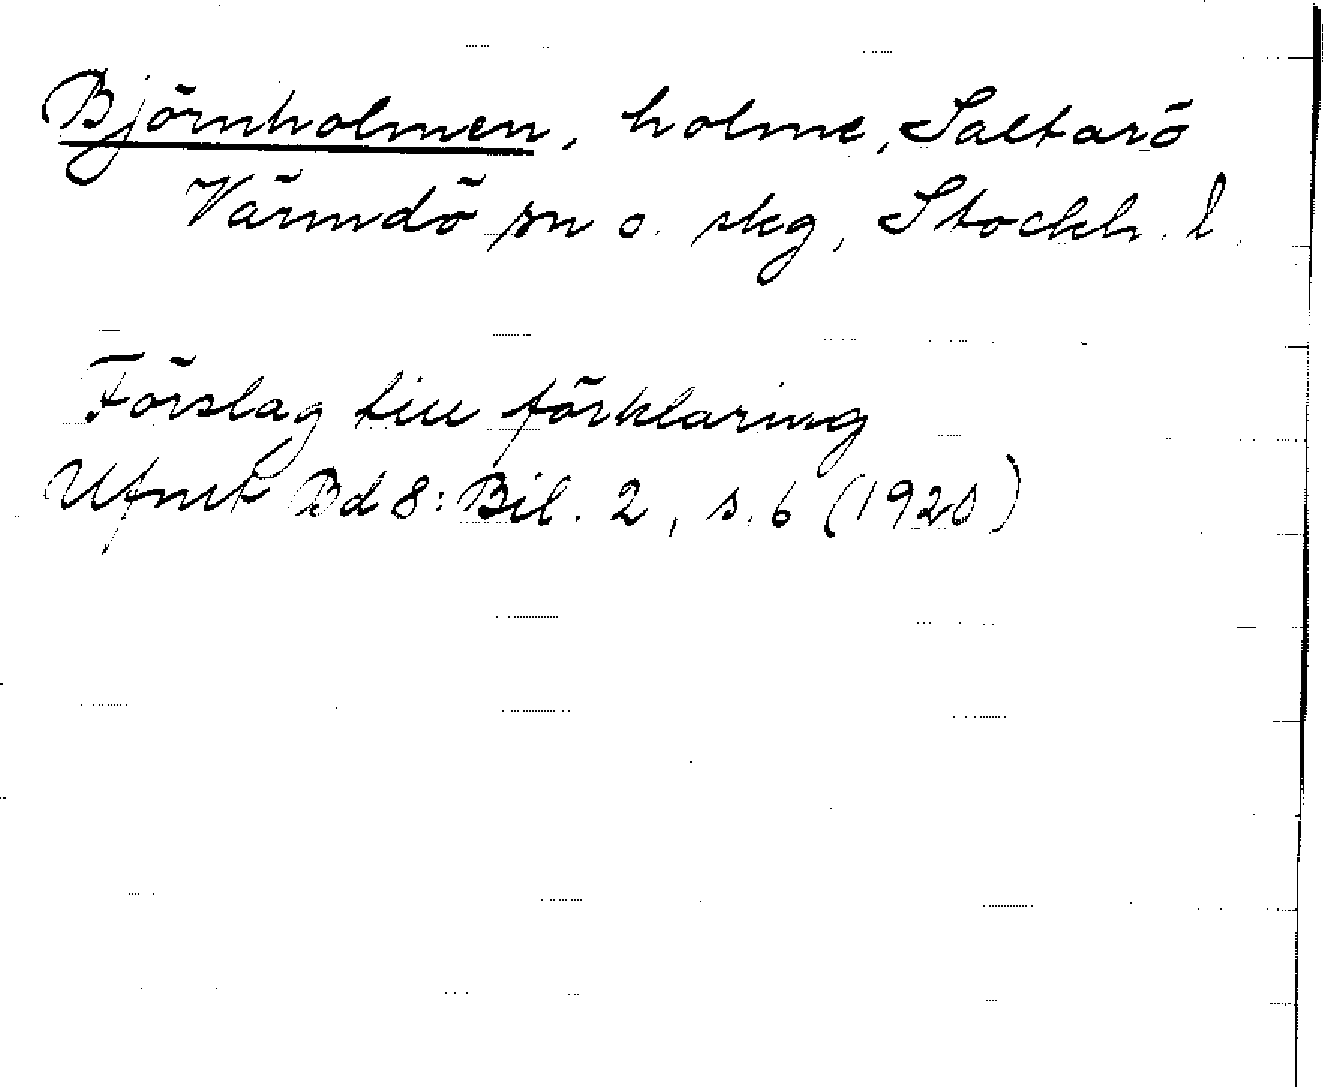 Björnholmen, holme, Saltarö
Värmdö sn o. skg, Stockh. l.
Förslag till förklaring
Utfnt Bd 8: Bil. 2, s. 6 (1920)